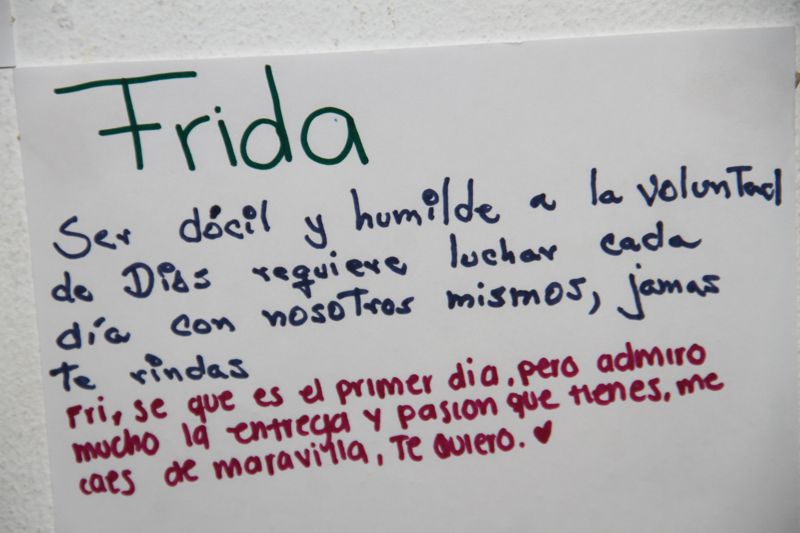 Frida
Ser dócil y humilde a la voluntad
de Dios requiere luchar cada
día con nosotros mismos, jamas
te rindas
Fri, se que es el primer dia, pero admiro
mucho la entrega y pasion que tienes, me
caes de maravilla, Te quiero. ♥